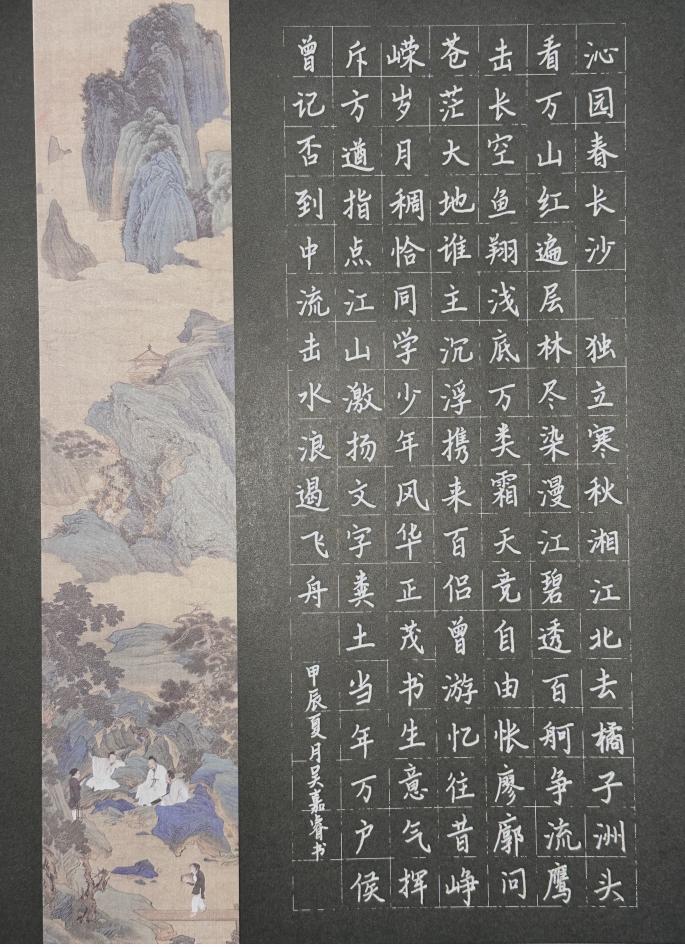 沁园春长沙 独立寒秋湘江北去橘子洲头
看万山红遍层林尽染漫江碧透百舸争流鹰
击长空鱼翔浅底万类霜天竞自由怅廖廓问
苍茫大地谁主沉浮携来百侣曾游忆往昔峥
嵘岁月稠恰同学少年风华正茂书生意气挥
斥方遒指点江山激扬文字粪土当年万户侯
曾记否到中流击水浪遏飞舟
甲辰夏月吴嘉睿书